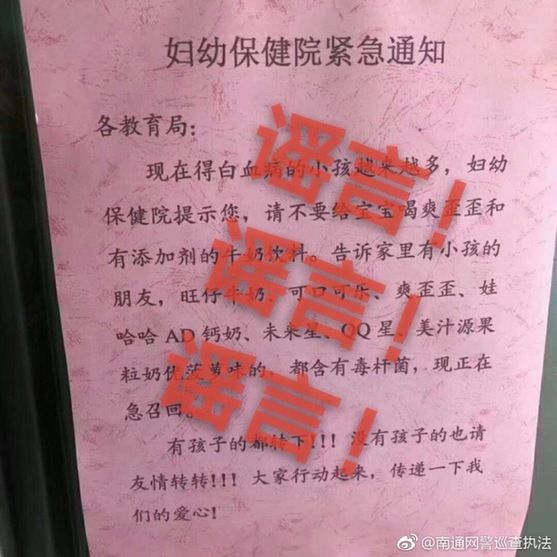 妇幼保健院紧急通知
各教育局：
现在得白血病的小孩越来越多，妇幼
保健院提示您，请不要给宝宝喝爽歪歪和
有添加剂的牛奶饮料。告诉家里有小孩的
朋友，旺仔牛奶、可口可乐、爽歪歪、娃
哈哈 AD 钙奶、未来星、QQ 星、美汁源果
粒奶优菠萝味的，都含有毒杆菌，现正在
急召回。
有孩子的都转下!!! 没有孩子的也请
友情转转!!! 大家行动起来，传递一下我
们的爱心!
谣言！
谣言！
谣言！
@南通网警巡查执法